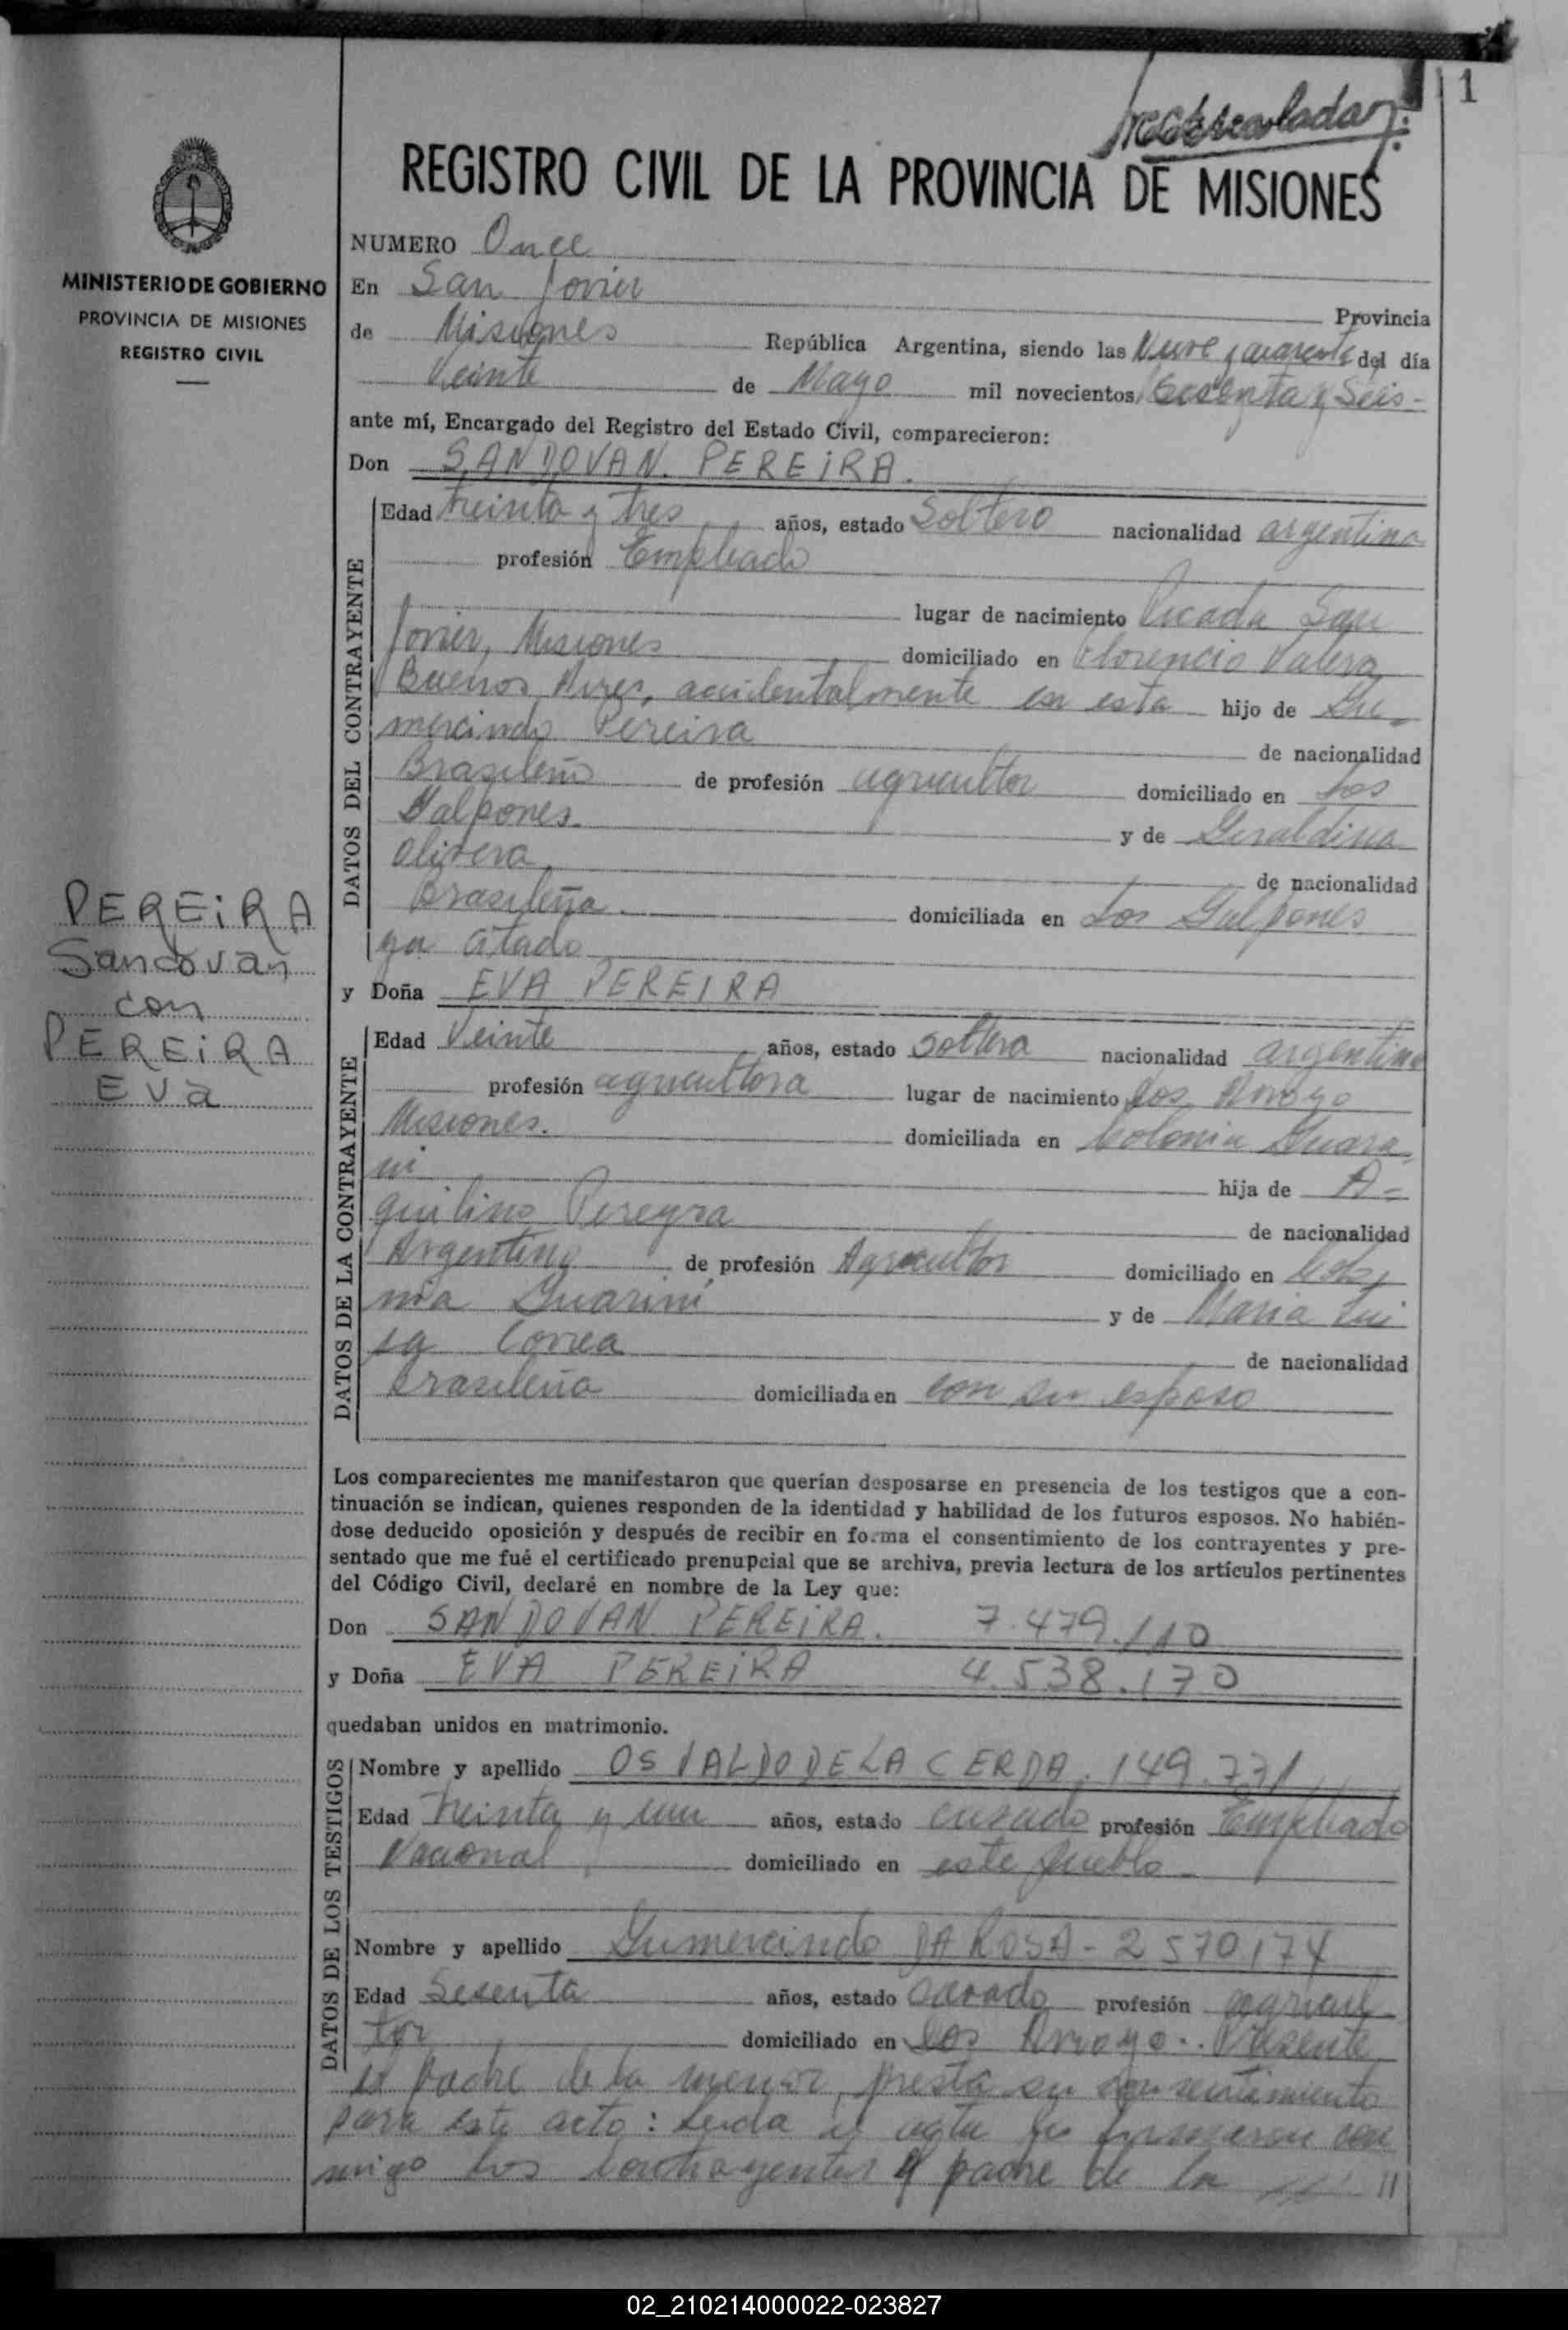 1
REGISTRO CIVIL DE LA PROVINCIA DE MISIONES
MINISTERIO DE GOBIERNO
PROVINCIA DE MISIONES
REGISTRO CIVIL
NUMERO Once
En San Javier Provincia
de Misiones República Argentina, siendo las Nueve y cuarenta del día
Veinte de Mayo mil novecientos Sesenta y Seis -
ante mí, Encargado del Registro del Estado Civil, comparecieron:
Don SANDOVAN PEREIRA.
DATOS DEL CONTRAYENTE
Edad treinta y tres años, estado Soltero nacionalidad argentina
profesión Empleado
lugar de nacimiento Picada San
Javier, Misiones domiciliado en Florencio Valera
Buenos Aires, accidentalmente en esta hijo de Gu-
mercindo Pereira de nacionalidad
Brasileño de profesión agricultor domiciliado en Los
Galpones y de Geraldina
Olivera de nacionalidad
Brasileña domiciliada en Los Galpones
ya citado
y Doña EVA PEREIRA
PEREIRA
Sandovan
con
PEREIRA
Eva
DATOS DE LA CONTRAYENTE
Edad Veinte años, estado soltera nacionalidad argentina
profesión agricultora lugar de nacimiento Dos Arroyo
Misiones. domiciliada en Colonia Guara
ni hija de A-
quilino Pereyra de nacionalidad
Argentino de profesión Agricultor domiciliado en Colo
nia Guarini y de Maria Lui
sa Correa de nacionalidad
brasileña domiciliada en con su esposo
Los comparecientes me manifestaron que querían desposarse en presencia de los testigos que a con-
tinuación se indican, quienes responden de la identidad y habilidad de los futuros esposos. No habién-
dose deducido oposición y después de recibir en forma el consentimiento de los contrayentes y pre-
sentado que me fué el certificado prenupcial que se archiva, previa lectura de los artículos pertinentes
del Código Civil, declaré en nombre de la Ley que:
Don SANDOVAN PEREIRA. 7.479.110
y Doña EVA PEREIRA 4.538.170
quedaban unidos en matrimonio.
DATOS DE LOS TESTIGOS
Nombre y apellido OSVALDO DE LA CERDA. 149.771
Edad treinta y un años, estado casado profesión Empleado
Nacional domiciliado en este pueblo
Nombre y apellido Gumercindo DA ROSA - 2570174
Edad Sesenta años, estado casado profesión agricul
tor domiciliado en Dos Arroyo. Presente
el padre de la menor, presta su consentimiento
para este acto: Leida el acta la firmaron con
migo los contrayentes el padre de la //
02_210214000022-023827